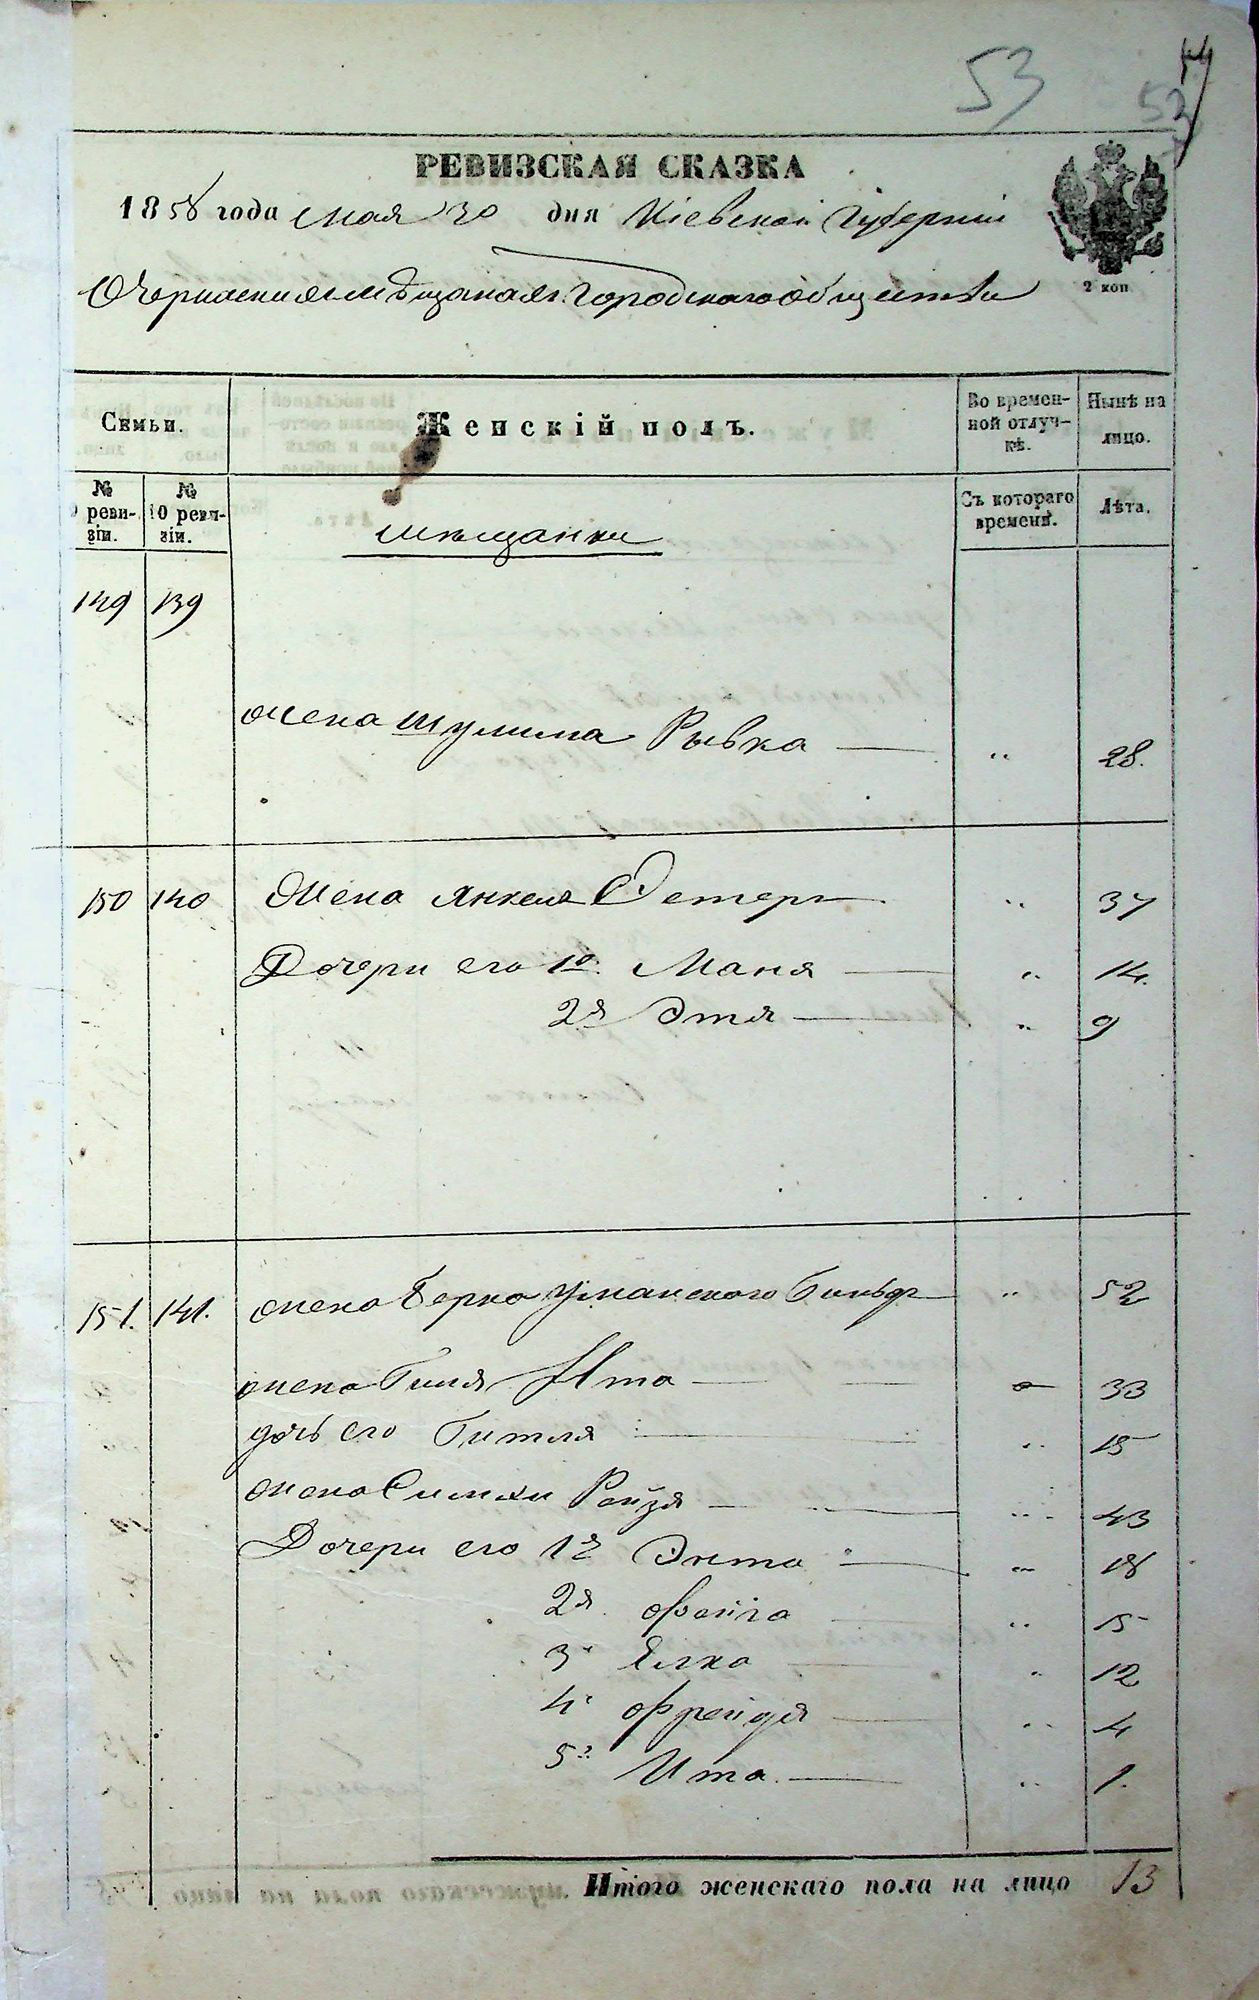 53
РЕВИЗСКАЯ СКАЗКА
1858 года Мая 30 дня Кіевской Губерніи
2 коп
О Черкаскихъ мѣщанахъ Городскаго общества
Семьи.
Женскій полъ.
Во времен-
ной отлуч-
кѣ.
Нынѣ на
лицо.
№
реви-
зіи.
№
10 реви-
зіи.
мѣщанки
Съ котораго
времени.
Лѣта.
149 139
жена Шулима Рывка 28.
150 140 Жена Янкеля Естеръ 37
Дочери его 1я Маня 14.
2я Этя 9
151. 141. жена Берка Уманского Гиньда 52
жена Гиля Ита 33
дочь его Гитля 15
жена Симхи Рейзя 43
Дочери его 1я Энта 18
2я Фейга 15
3 Элка 12
4 Фрейдя 4
5 Ита 1.
Итого женскаго пола на лицо 13